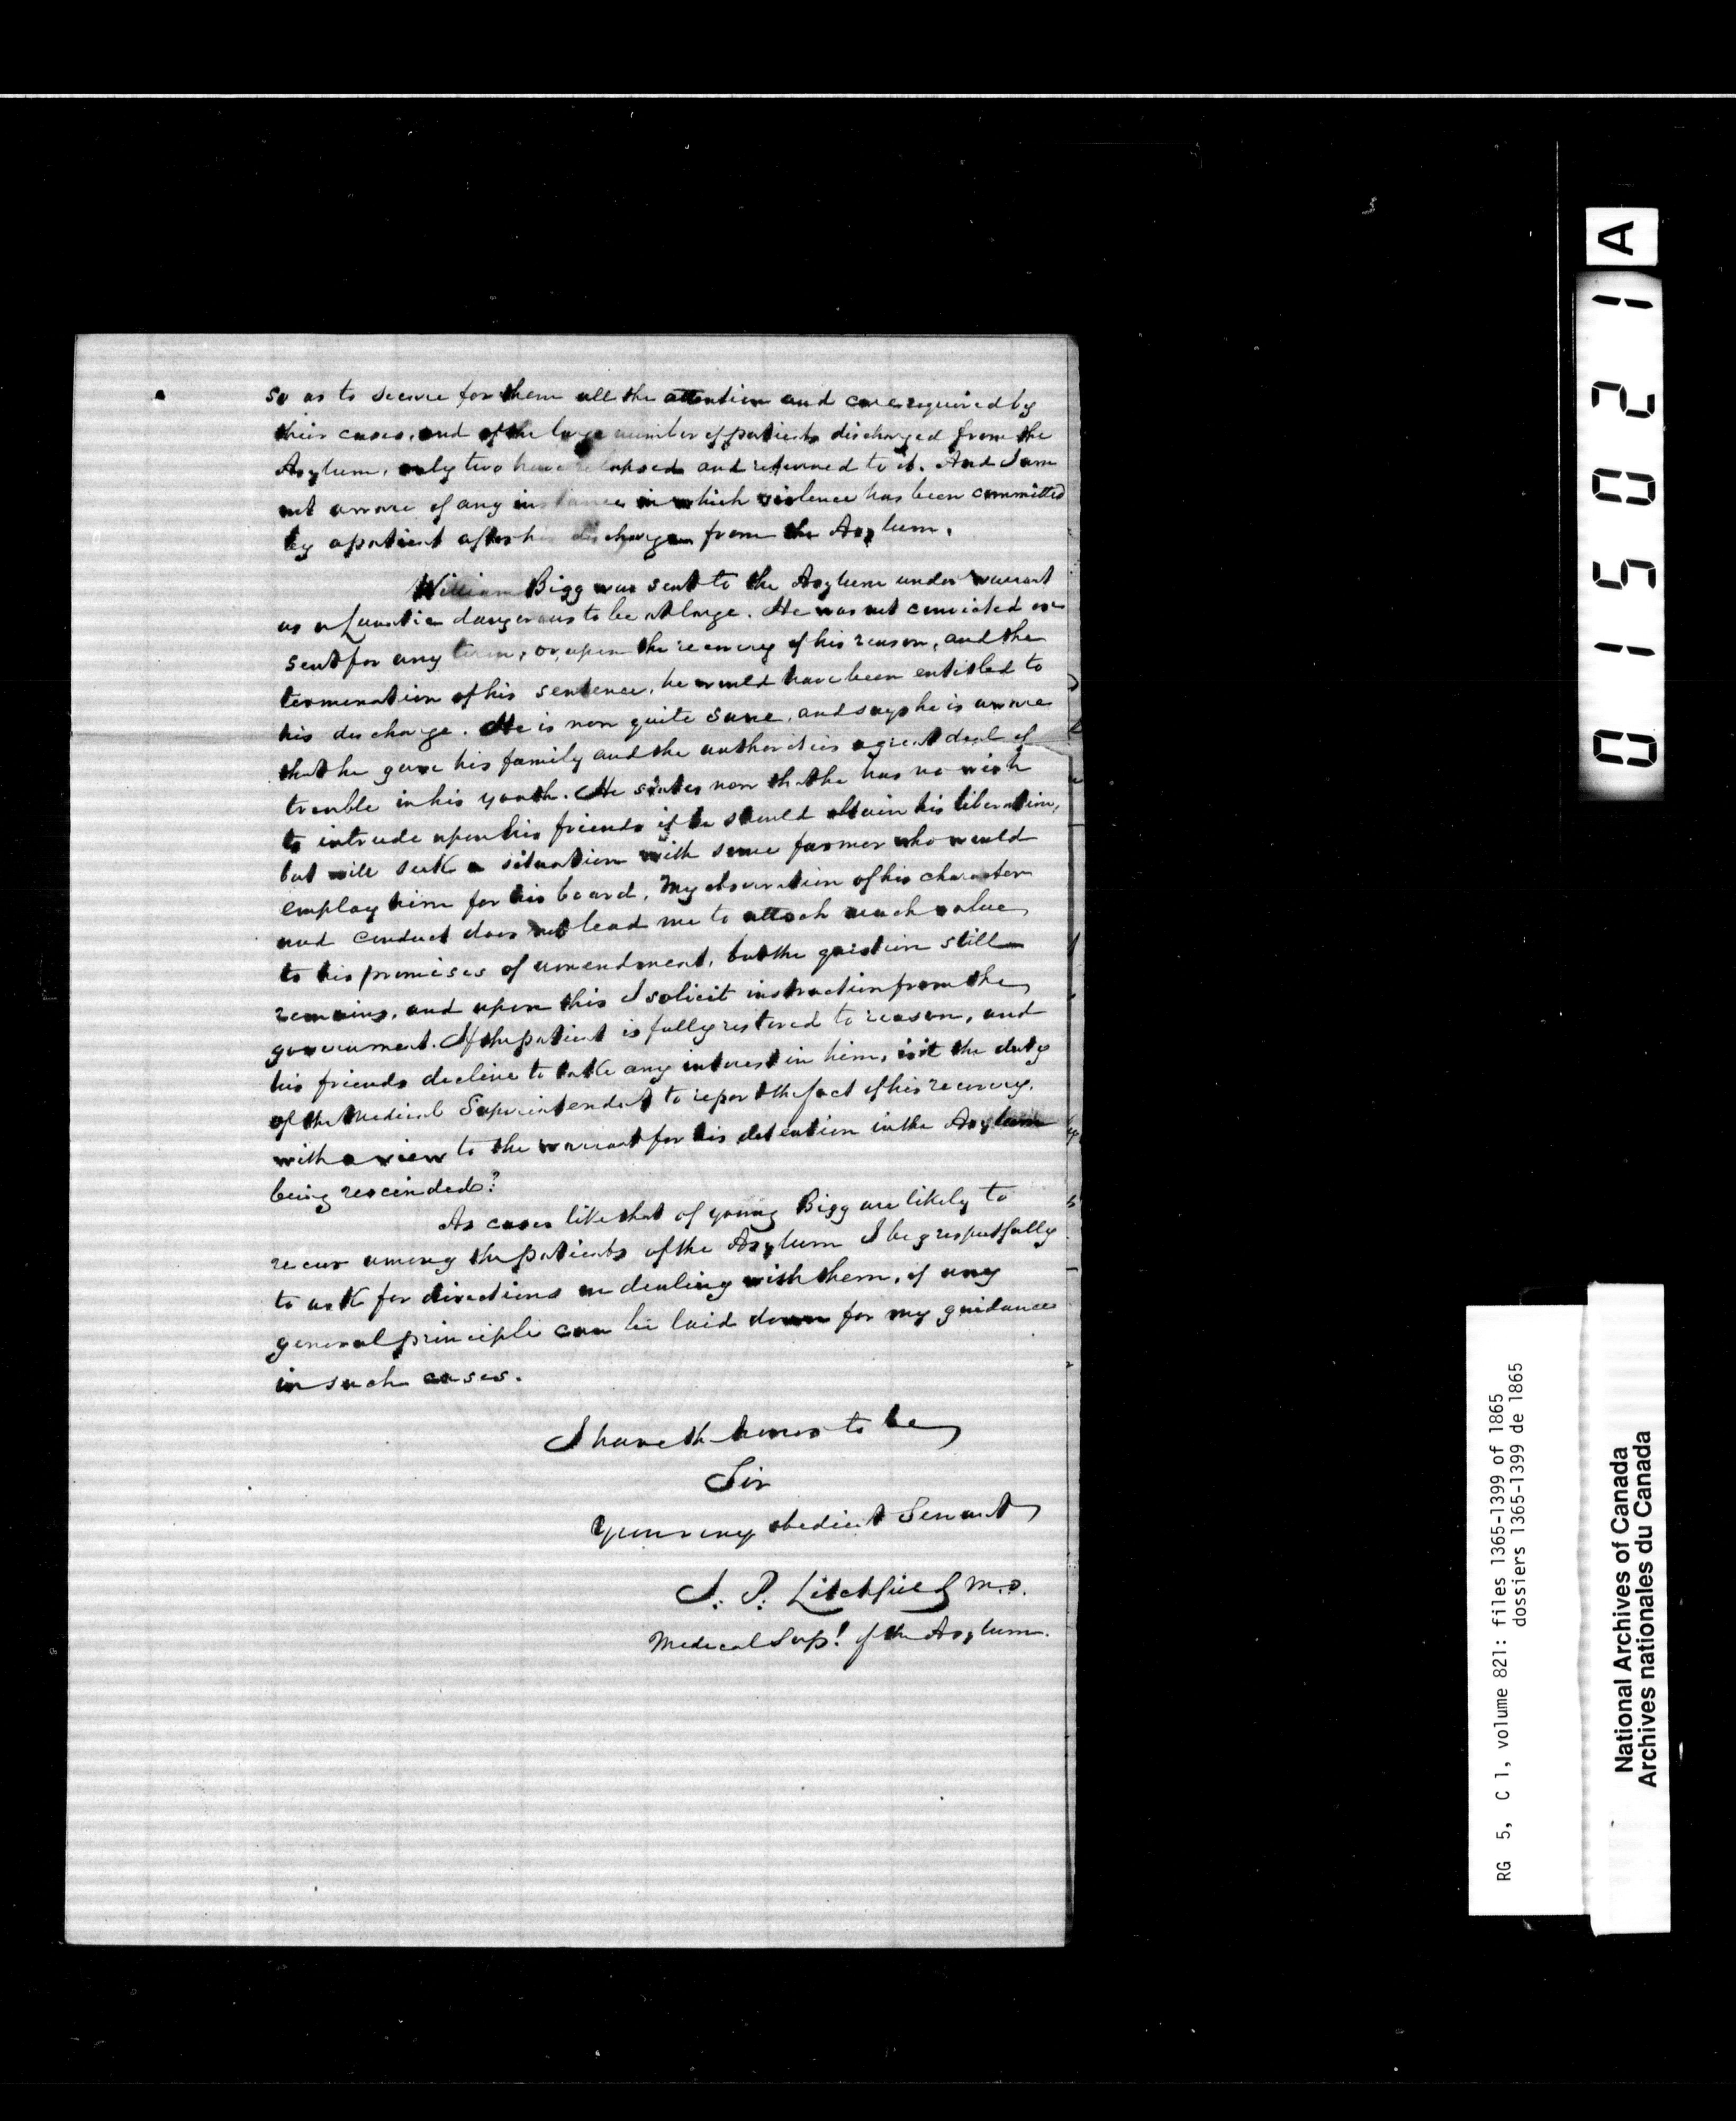 so as to secure for them all the attention and care required by
their cases, and of the large number of patients discharged from the
Asylum, only two have relapsed and returned to it. And I am
not aware of any instance in which violence has been committed
by a patient after his discharge from the Asylum.
William Bigg was sent to the Asylum under warrant
as a Lunatic dangerous to be at large. He was not convicted or
sent for any term, or, upon the recovery of his reason, and the
termination of his sentence, he would have been entitled to
his discharge. He is now quite sane, and says he is aware
that he gave his family and the authorities a great deal of
trouble in his youth. He states now that he has no wish
to intrude upon his friends if he should obtain his liberation,
but will seek a situation with some farmer who would
employ him for his board. My observation of his character
and conduct does not lead me to attach much value
to his promises of amendment, but the question still
remains, and upon this I solicit instruction from the
government. If the patient is fully restored to reason, and
his friends decline to take any interest in him, is it the duty
of the Medical Superintendent to report the fact of his recovery,
with a view to the warrant for his detention in the Asylum
being rescinded?
As cases like that of young Bigg are likely to
recur among the patients of the Asylum I beg respectfully
to ask for directions in dealing with them, if any
general principle can be laid down for my guidance
in such cases.
I have the honor to be
Sir
Your very obedient Servant
J. P. Litchfield M.D.
Medical Supt. of the Asylum.
A
015021
RG 5, C 1, volume 821: files 1365-1399 of 1865
dossiers 1365-1399 de 1865
National Archives of Canada
Archives nationales du Canada